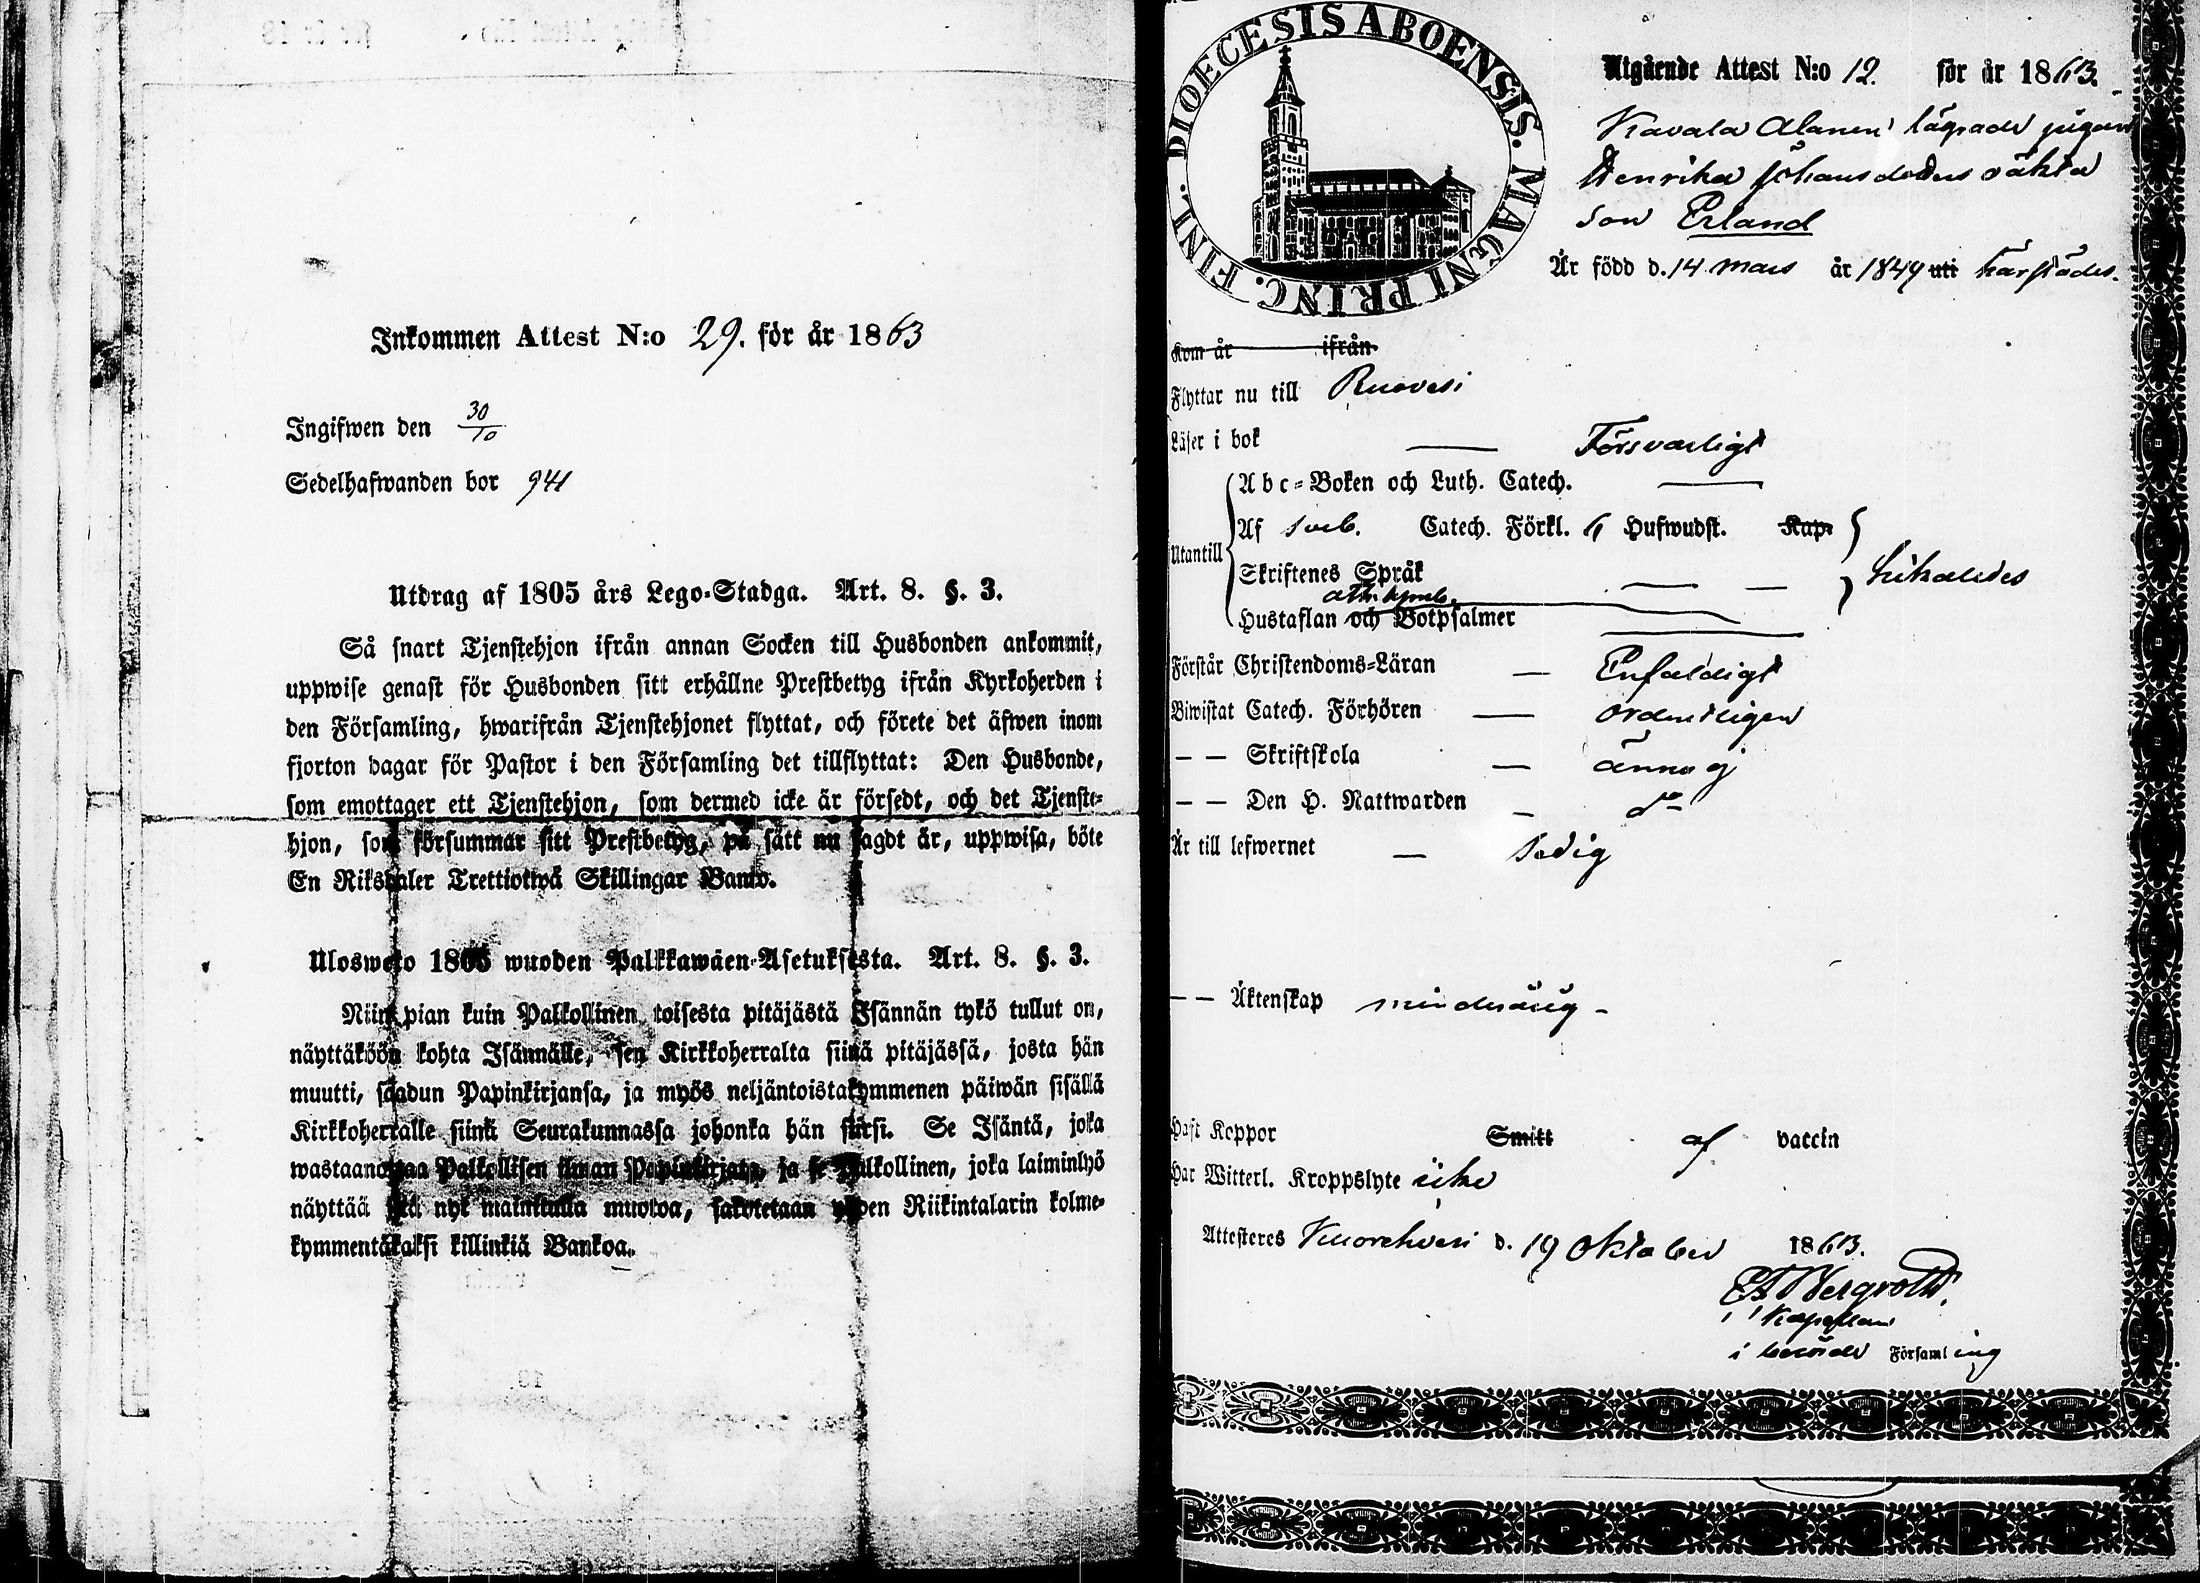 Inkommen Attest N:o 29. för år 1863
Ingifwen den 30/10
Sedelhafwanden bor 941
Utdrag af 1805 års Lego-Stadga. Art. 8. §. 3.
Så snart Tjenstehjon ifrån annan Socken till Husbonden ankommit,
uppwise genast för Husbonden sitt erhållne Prestbetyg ifrån Kyrkoherden i
den Församling, hwarifrån Tjenstehjonet flyttat, och förete det äfwen inom
fjorton dagar för Pastor i den Församling det tillflyttat: Den Husbonde,
som emottager ett Tjenstehjon, som dermed icke är försedt, och det Tjenste-
hjon, som försummar sitt Prestbetyg, på sätt nu sagdt är, uppwisa, böte
En Riksdaler Trettiotwå Skillingar Banko.
Ulosweto 1805 wuoden Palkkawäen-Asetuksesta. Art. 8. §. 3.
Niin pian kuin Palkollinen toisesta pitäjästä Isännän tykö tullut on,
näyttäköön kohta Isännälle, sen Kirkkoherralta siinä pitäjässä, josta hän
muutti, saadun Papinkirjansa, ja myös neljäntoistakymmenen päiwän sisällä
Kirkkoherralle siinä Seurakunnassa johonka hän siirsi. Se Isäntä, joka
wastaanottaa Palkollisen ilman Papinkirjata, ja se Palkollinen, joka laiminlyö
näyttää sitä nyt mainitulla muotoa, sakotetaan yhden Riikintalarin kolme-
kymmentäkaksi killinkiä Bankoa.
DIOECESIS ABOENSIS. MAGNI PRINC. FINL.
Utgående Attest N:o 12. för år 1863.
Kavala Alanen lägrade pigan
Henrika Johansdotters oäkta
son Erland
Är född d. 14 Mars år 1849 uti härstädes.
Kom år ifrån
Flyttar nu till Ruovesi
Läser i bok — Försvarligt
Utantill
Abc-Boken och Luth. Catech. —
Af Sveb. Catech. Förkl. 6 Hufwudst. Kap.
Skriftenes Språk — —
likaledes
Ath. symb.
Hustaflan och Botpsalmer
Förstår Christendoms-Läran — Enfaldigt
Biwistat Catech. Förhören — ordentligen
— — Skriftskola — ännu ej
— — Den H. Nattwarden — d:o
Är till lefwernet — sedig
— — Äktenskap minderårig —
Haft Koppor Smitt af vaccin
Har Witterl. Kroppslyte icke
Attesteres Kuorehvesi d. 19 Oktober 1863.
Bergroth.
Kapellan
i berörde Församling